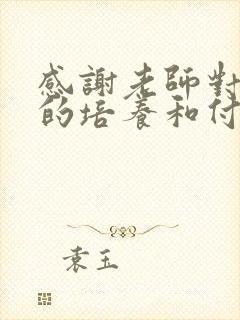 感謝老師對
的培養和付
袁玉